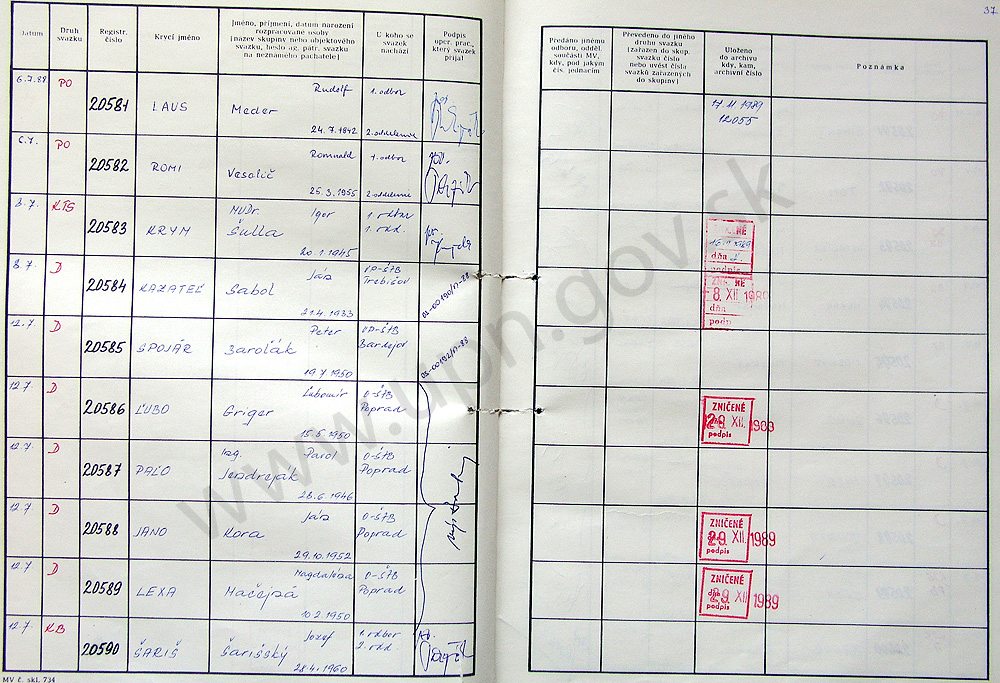 37.
Datum
Druh svazku
Registr. číslo
Krycí jméno
Jméno, příjmení, datum narození
rozpracované osoby
[název skupiny nebo objektového
svazku, heslo ag. pátr. svazku
na neznámého pachatele]
U koho se
svazek
nachází
Podpis
oper. prac.,
který svazek
přijal
Předáno jinému
odboru, odděl.
součásti MV,
kdy, pod jakým
čís. jednacím
Převedeno do jiného
druhu svazku
[zařazen do skup.
svazku číslo
nebo uvést čísla
svazků zařazených
do skupiny]
Uloženo
do archivu
kdy, kam,
archivní číslo
Poznámka
6.7.88 PO 20581 LAUS Rudolf Meder 24.7.1942 1. odbor 2. oddelenie
17.11.1989
12055
6.7. PO 20582 ROMI Romuald Vesolič 25.3.1955 1. odbor 2. oddelenie
8.7. KTS 20583 KRYM MUDr. Igor Šulla 20.1.1945 1. odbor 1. odd.
8.7. D 20584 KAZATEĽ Ján Sabol 21.4.1933 OP-ŠTB Trebišov
ZNIČENÉ
8. XII. 1989
dňa
podpis
12.7. D 20585 SPOJÁR Peter 19.7.1950 OP-ŠTB Bardejov
12.7. D 20586 ĽUBO Ľubomír Griger 15.5.1950 O-ŠTB Poprad
ZNIČENÉ
XII. 1989
podpis
12.7. D 20587 PAĽO Ing. Pavol Jendreják 28.6.1946 O-ŠTB Poprad
12.7. D 20588 JANO Ján Kora 29.10.1952 O-ŠTB Poprad
ZNIČENÉ
29. XII. 1989
podpis
12.7. D 20589 LEXA Magdaléna 10.2.1950 O-ŠTB Poprad
ZNIČENÉ
29. XII. 1989
podpis
12.7. KB 20590 ŠARIŠ Jozef Šarišský 28.4.1960 1. odbor 2. odd.
MV č. skl. 734
www.upn.gov.sk